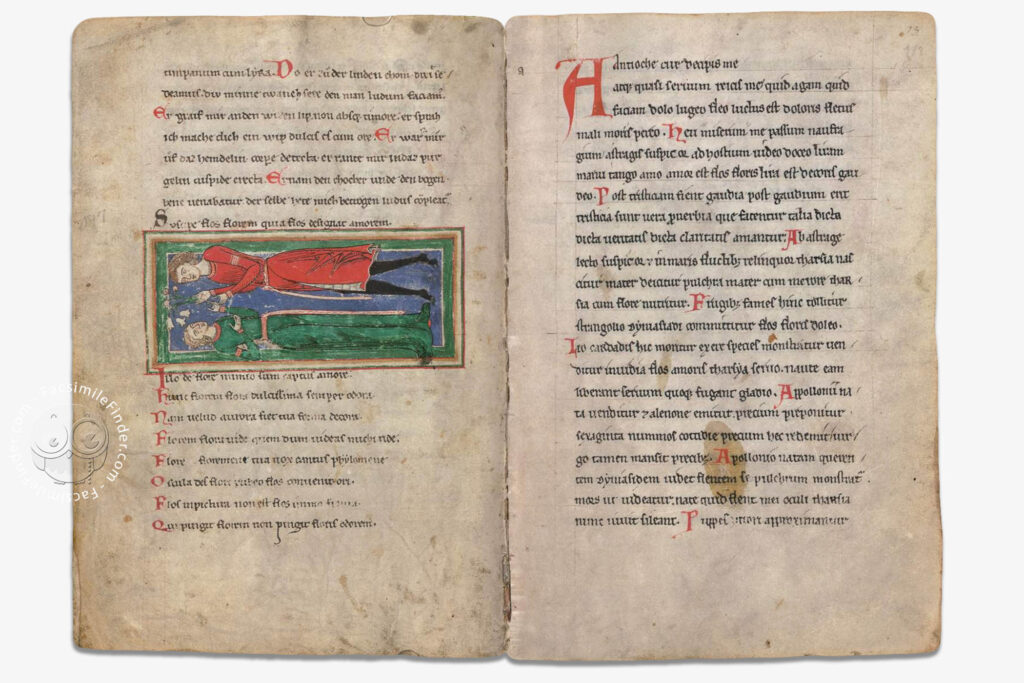 timpanum cum lyra. Do er zu der linden chom dixi se
deamus. div minne twanch sere den man ludum faciam.
Er graif mir an den wizen lip non absq; timore. er sprah
ich mache dich ein wip dulcis es cum ore. Er warf mir
uf daz hemdelin corpe detecta er rante mir in daz pur
gelin cuspide erecta. Er nam den chocher unde den bogen
bene venabatur der selbe hete mich betrogen ludus copleat.
Suscipe flos florem quia flos designat amorem.
Illo de flore nimio sum captus amore.
hunc florem flora dulcissima semper odora.
Nam velud aurora fiet tua forma decora.
Florem flora vide quem dum videas michi ride.
Flore tua vox cantus phylomene
Oscula des flori rubeo flos convenit ori.
Flos in pictura non est flos immo figura.
Qui pingit florem non pingit floris odorem.
Antioche cur decipis me
atq; quasi servum reicis me quid agam quid
faciam dolo lugeo fleo luctus est doloris fletus
mali moris pereo. Heu miserum me passum naufra
gium astragis suspicor ad hostium video doceo liram
manu tango amo amor est flos floris lira est decoris gau
deo. Post tristiciam fient gaudia post gaudium erit
tristicia sunt vera proverbia que fatentur talia dicta
dicta veritatis dicta claritatis amantur. Ab astrage
lecto suspicor & in maris fluctibus relinquor tharsia nas
citur mater deicitur pulchra mater cum me vire thar
sia cum flore nutritur. Frugib; fames hinc tollitur
strangolio dyonisiadi committitur flos floris doleo.
Licoridis hic moritur exeter species monstratur ven
ditur invidia flos amoris tharsya servo. naute eam
liberant servum quoq; fugant gladio. Appollonii na
ta venditur zalenone emitur precium preponitur
sexaginta nummos cottidie precium hec redemitur
go tamen mansit precib;. Apollonio natam queren
tem dyonisidem videt flentem se pulchrum monstrat
mors ut videatur. nate quid flent mei oculi tharsia
nunc vivit sileant. Puppes litori approximantur
FacsimileFinder.com · FacsimileFinder.com ·